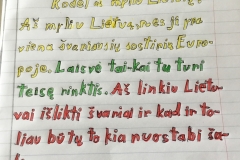 Kodėl aš myliu Lietuvą?
Aš myliu Lietuvą, nes ji yra
viena švariausių sostinių Euro-
poje. Laisvė tai-kai tu turi
teisę rinktis. Aš linkiu Lietu-
vai išlikti švariai ir kad ir to-
liau būtų tokia nuostabi ša-